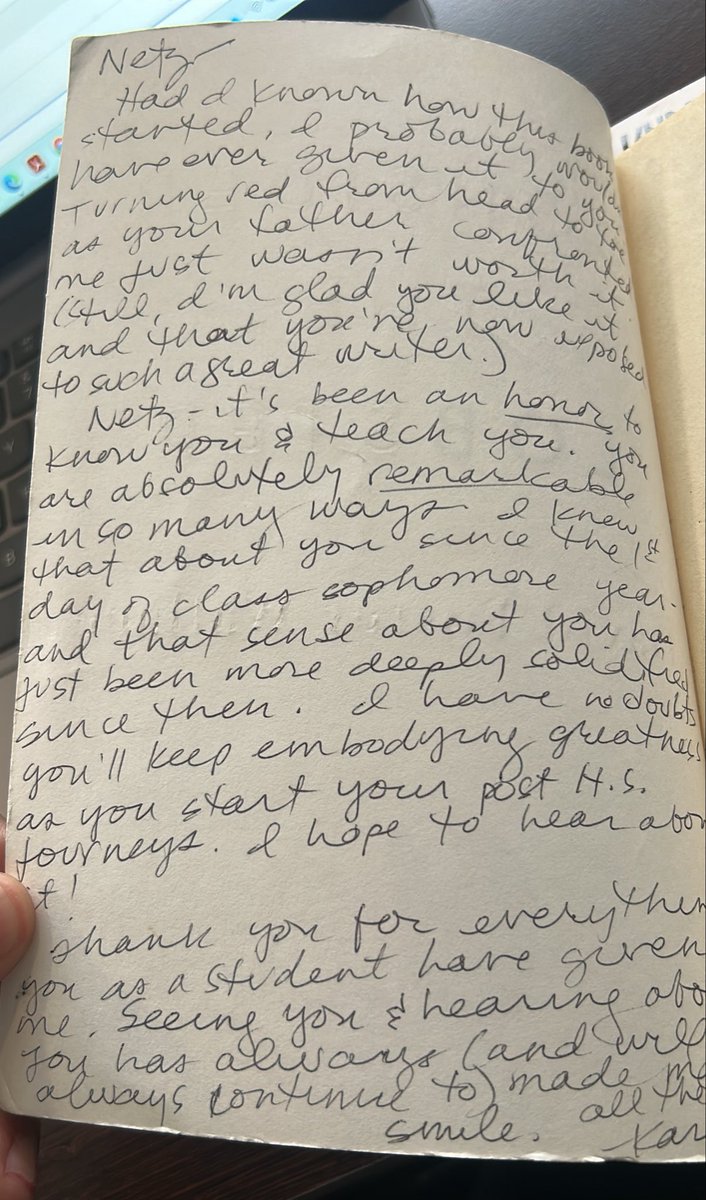 Netz-
Had I known how this book
started, I probably wouldn't
have ever given it to you.
Turning red from head to toe
as your father confronted
me just wasn't worth it.
(Still, I'm glad you like it
and that you're now exposed
to such a great writer.)
Netz - it's been an honor to
know you & teach you. You
are absolutely remarkable
in so many ways. I knew
that about you since the 1st
day of class sophomore year.
and that sense about you has
just been more deeply solidified
since then. I have no doubts
you'll keep embodying greatness
as you start your post H.S.
journeys. I hope to hear abou
it!
Thank you for everythin
you as a student have given
me. Seeing you & hearing abo
you has always (and will
always continue to) made me
smile. All the
Kar